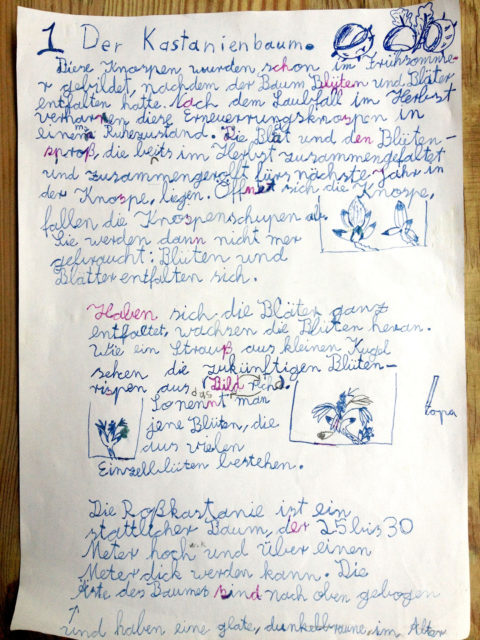 1 Der Kastanienbaum.
Diese Knospen wurden schon im Frühsomme-
r gebildet, nachdem der Baum Blüten und Bläter
entfalten hatte. Nach dem Laubfall im Herbst
verharren diese Erneuerungsknospen in
einem Ruhezustand. Die Blat und den Blüten-
sproß, die beits im Herbst zusammengefaltet
und zusammengerolt fürs nächste Jahr in
der Knospe, ligen. Öffnet sich die Knospe,
fallen die Knospenschupen ab.
Sie werden dann nicht mer
gebraucht: Blüten und
Blätter entfalten sich.
Haben sich die Bläter ganz
entfaltet, wachsen die Blüten heran.
Wie ein Strauß aus kleinen Kugel
sehen die zukünftigen Blüten-
rispen aus (Bild).
So nennt man
das
jene Blüten, die
aus vielen
Einzelblüten bestehen.
opa
Die Roßkastanie ist ein
stattlicher Baum, der 25 bis 30
Meter hoch und über einen
Meter dick werden kann. Die
Äste des Baumes sind nach oben gebogen
und haben eine glate, dunkelbraune, im Alter